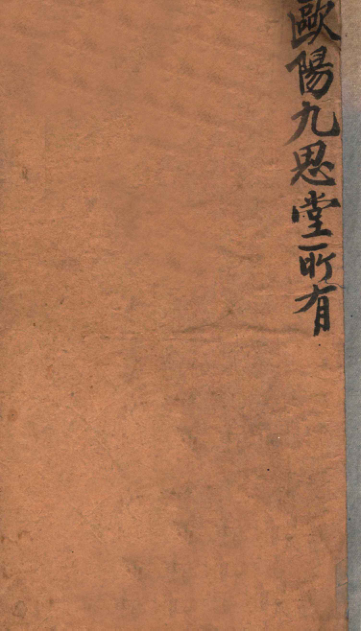 歐陽九思堂所有